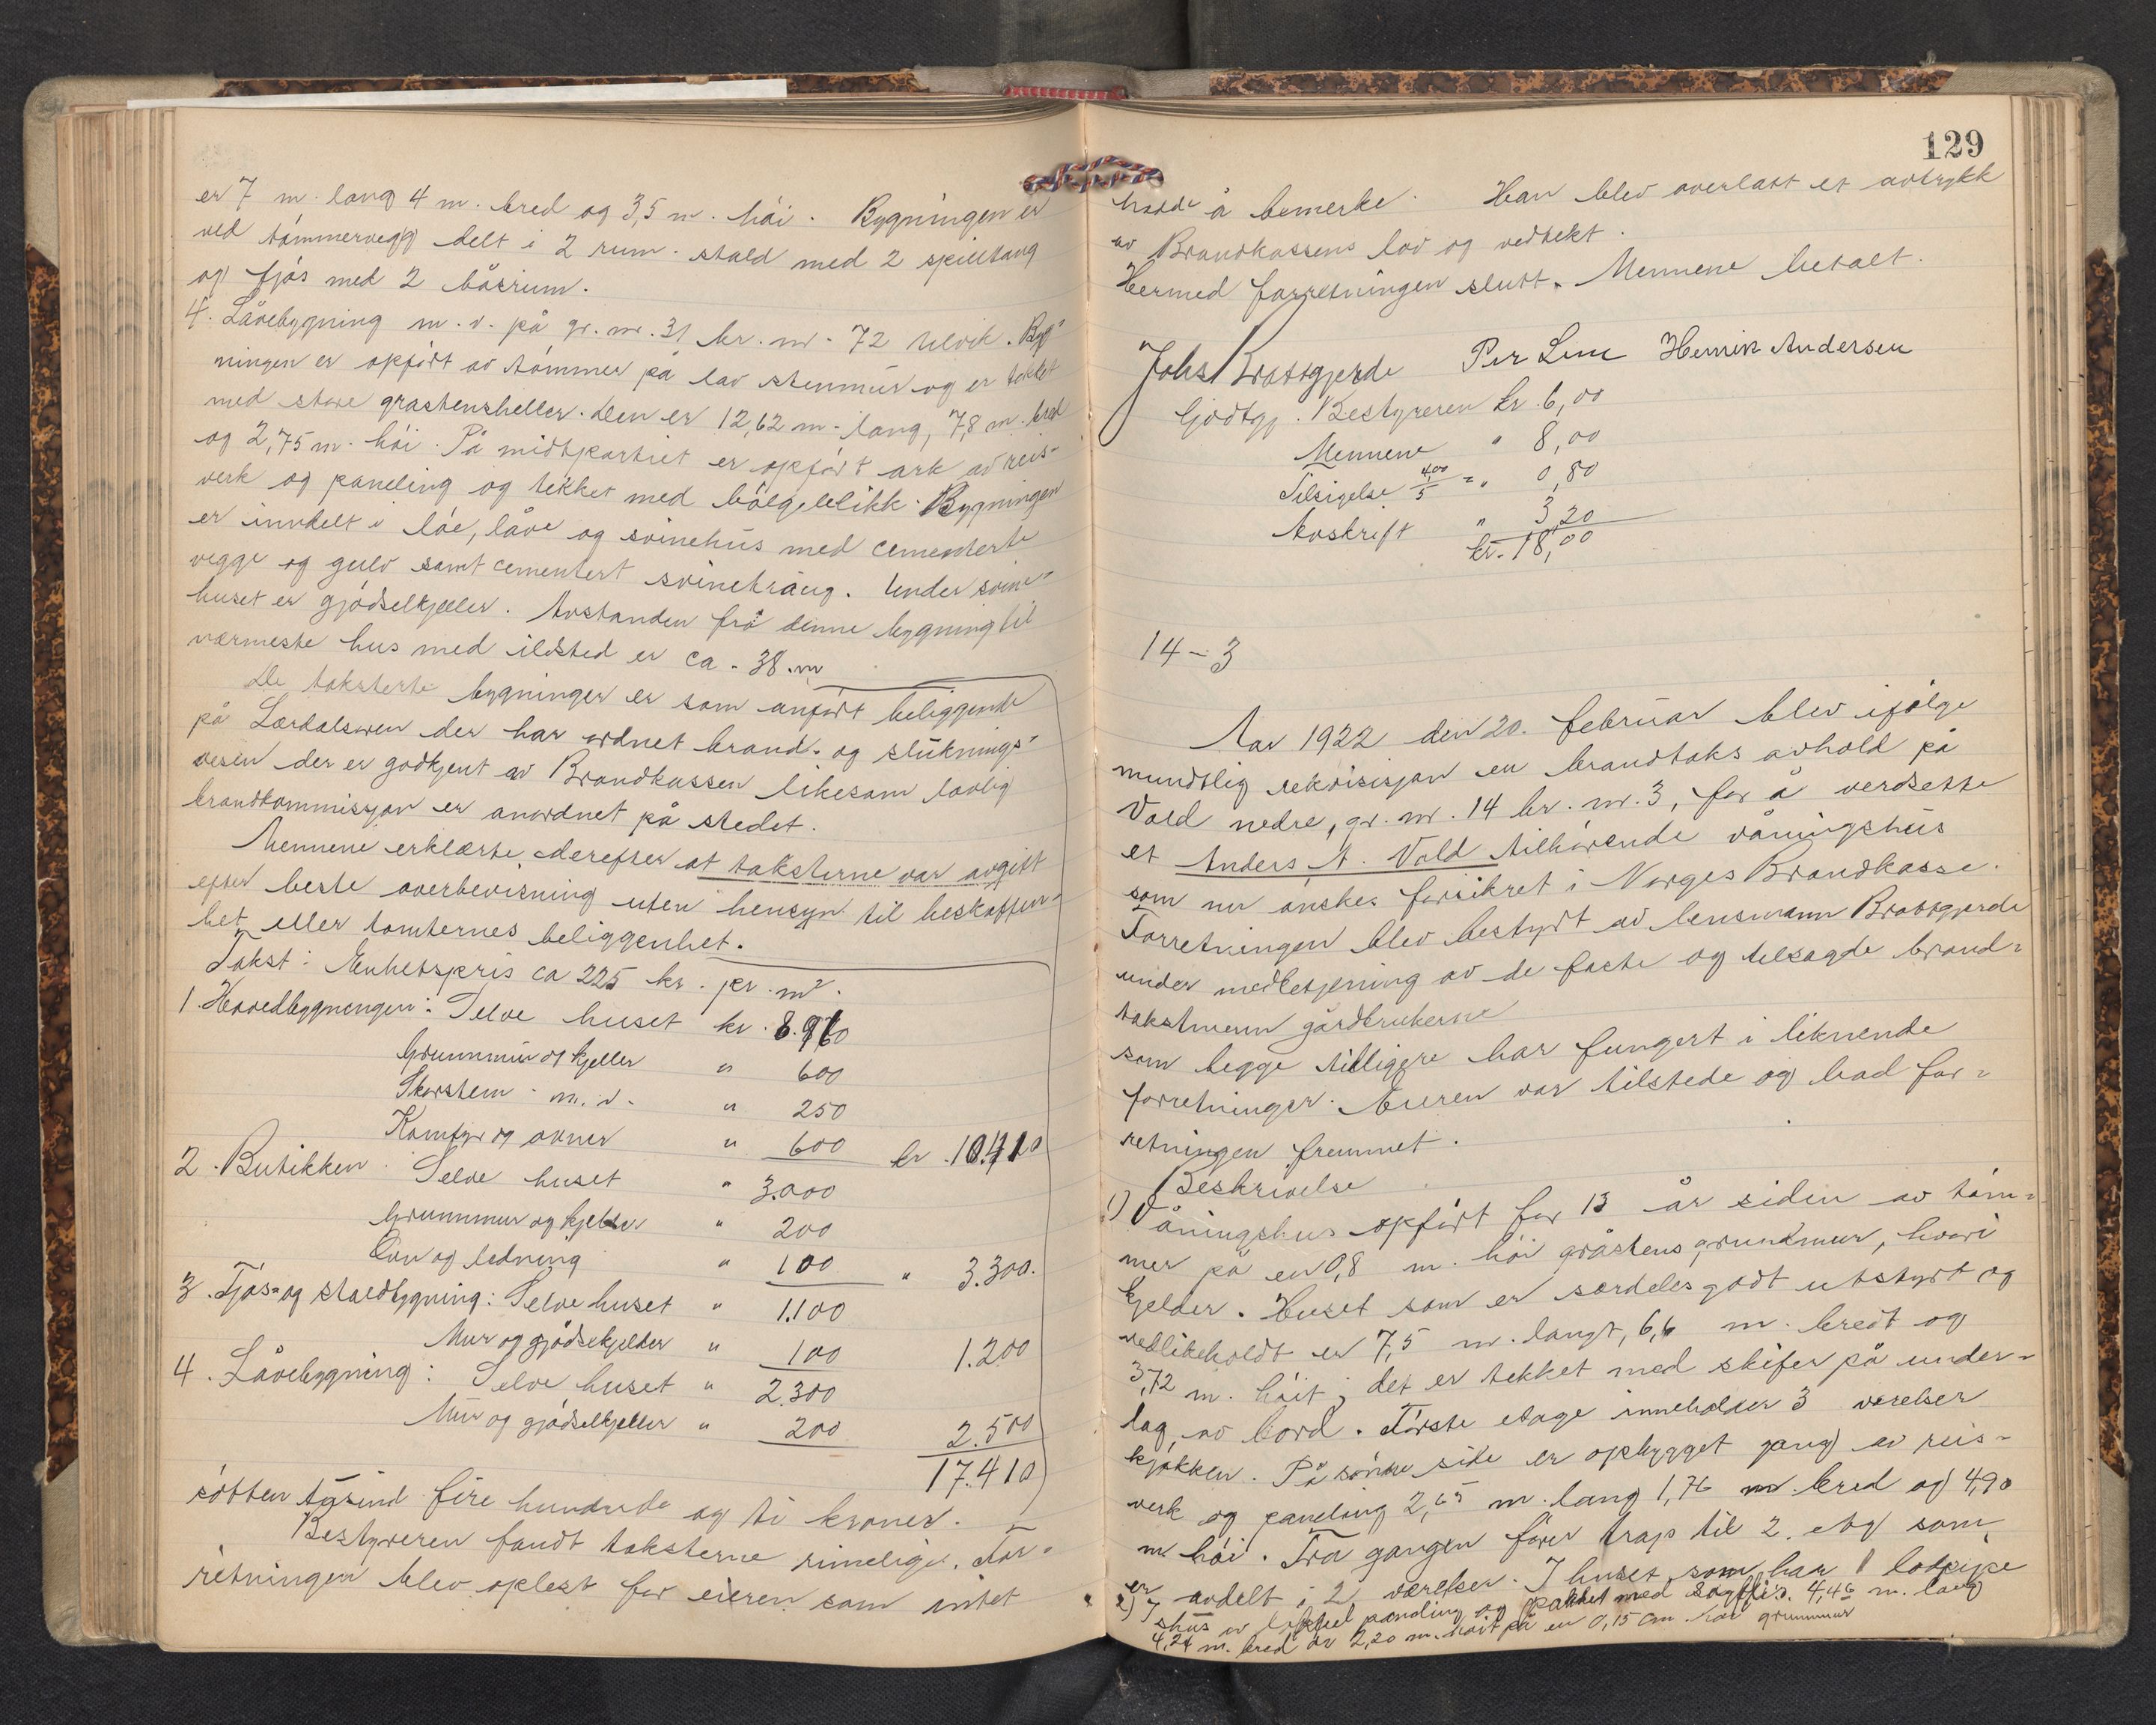 er 7 m. lang 4 m. bred og 3,5 m. høi. Bygningen er
ved tømmervegg delt i 2 rum. stald med 2 spilltaug
og fjøs med 2 båsrum.
4. Låvebygning m. v. på gr. nr. 31 br. nr. 72 Ulvik. Byg=
ningen er opført av tømmer på lav stenmur og er tekket
med store grastensheller. Den er 12,62 m. lang, 7,8 m. bred
og 2,75 m. høi. På midtpartiet er opført ark av reis-
verk og paneling og tekket med bølgeblikk. Bygningen
er inndelt i løe, låve og svinehus med cementerte
vegge og gulv samt cementert svinetraug. Under svine-
huset er gjødselkjeller. Avstanden frå denne bygning til
nærmeste hus med ildsted er ca. 38. m
De taksterte bygninger er som anført beliggende
på Lærdalsøren der har ordnet brand- og sluknings-
vesen der er godkjent av Brandkassen likesom lovlig
brandkommissjon er anordnet på stedet.
Mennene erklærte derefter at taksterne var avgitt
efter beste overbevisning uten hensyn til beskaffen-
het eller tomternes beliggenhet.
Takst: Enhetspris ca 225 kr. pr. m².
1. Hovedbygningen: Selve huset kr. 8.960
Grunnmur og kjeller " 600
Skorsten m. v. " 250
Komfyr og ovner " 600 kr. 10.410
2. Butikken. Selve huset " 3.000
Grunnmur og kjelder " 200
Ovn og ledning " 100 " 3.300.
3. Fjøs- og staldbygning: Selve huset " 1.100
Mur og gjødselkjelder " 100 1.200
4. Låvebygning: Selve huset " 2.300
Mur og gjødselkjeller " 200 2.500
17.410
søtten tusind fire hundrede og ti kroner.
Bestyreren fandt taksterne rimelige. For-
retningen blev oplest for eieren som intet
129
hadde å bemerke. Han blev overlatt et avtrykk
av Brandkassens lov og vedtekt.
Hermed forretningen slutt. Mennene betalt.
Johs Brattgjerde Per Lem Henrik Andersen
Godtgj. Bestyreren kr. 6,00
Mennene " 8,00
Tilsigelse 4,00/5 = " 0,80
Avskrift " 3,20
kr. 18,00
14-3
Aar 1922 den 20. februar blev ifølge
mundtlig rekvisisjon en brandtakst avhold på
Vold nedre, gr. nr. 14 br. nr. 3, for å verdsette
et Anders A. Vold tilhørende våningshus
som nu ønskes forsikret i Norges Brandkasse.
Forretningen blev bestyrt av lensmann Brattgjerde
under medbetjening av de faste og tilsagde brand=
takstmenn gårdbrukerne
som begge tidligere har fungert i liknende
forretninger. Eieren var tilstede og bad for=
retningen fremmet.
Beskrivelse
1) Våningshus opført for 13 år siden av tøm=
mer på en 0,8 m. høi gråstens grundmur, hvori
kjelder. Huset som er særdeles godt utstyrt og
vedlikeholdt er 7,5 m. langt, 6,6 m. bredt og
3,72 m. høit; det er tekket med skifer på under-
lag av bord. Første etage inneholder 3 værelser
kjøkken. På søndre side er opbygget gang av reis-
verk og paneling 2,65 m. lang 1,76 m. bred og 4,90
m. høi. Fra gangen fører trap til 2. etg som
er avdelt i 2 værelser. I huset som har 1 lodpipe
2) I
av paneling og pakket med sagflis. 4,46 m. lang
4,24 m. bred og 2,20 m. høit på en 0,15 cm høi grunnmur